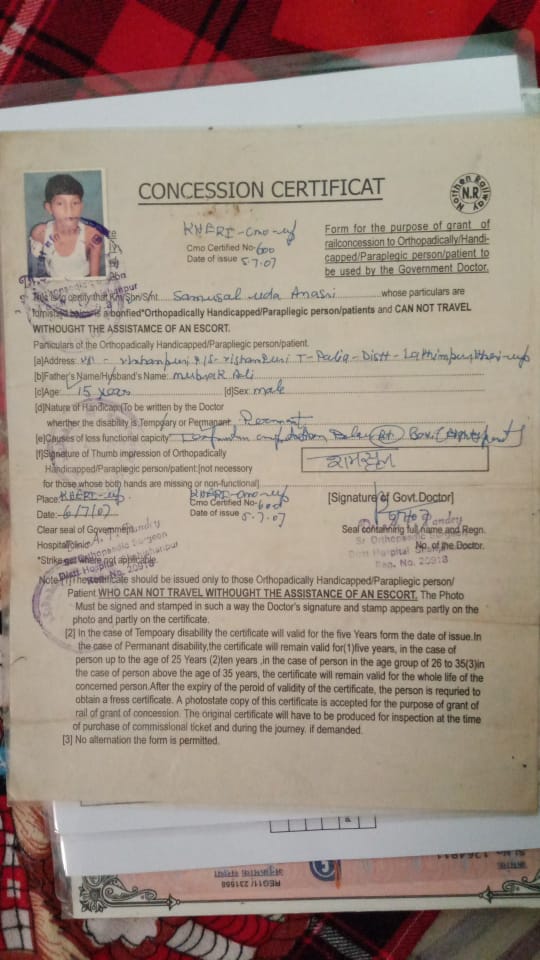 CONCESSION CERTIFICAT
Northen Railway
N.R
KHERI-cmo-up
Cmo Certified No-600
Date of issue 5.7.07
Form for the purpose of grant of
railconcession to Orthopadically/Handi-
capped/Paraplegic person/patient to
be used by the Government Doctor.
This is to certify that Km/Shri/Smt. Samusal uda Anasri whose particulars are
furnished below is a bonfied*Orthopadically Handicapped/Parapliegic person/patients and CAN NOT TRAVEL
WITHOUGHT THE ASSISTAMCE OF AN ESCORT.
Particulars of the Orthopadically Handicapped/Parapliegic person/patient.
[a]Address:
[b]Father's Name/Husband's Name: mubarak Ali
[c]Age: 15 years [d]Sex: male
[d]Nature of Handicap(To be written by the Doctor
wherther the disability is Tempory or Permanant:
[e]Causes of loss functional capicity
[f]Signature of Thumb impression of Orthopadically
Handicapped/Parapliegic person/patient:[not necessary
for those whose both hands are missing or non-functional]
Place: KHERI-up
KHERI-cmo-up
Cmo Certified No-600
Date of issue 5.7.07
[Signature of Govt.Doctor]
Date: 6/7/07
Clear seal of Government
Hospital/clinic
Seal containing full name and Regn.
No. of the Doctor.
Pandey
Sr Orthopaedic Surgeon
Distt Hospital
Reg. No. 20918
*Strike out where not applicable.
Note:[1]The certificate should be issued only to those Orthopadically Handicapped/Parapliegic person/
Patient WHO CAN NOT TRAVEL WITHOUGHT THE ASSISTANCE OF AN ESCORT. The Photo
Must be signed and stamped in such a way the Doctor's signature and stamp appears partly on the
photo and partly on the certificate.
[2] In the case of Tempoary disability the certificate will valid for the five Years form the date of issue.In
the case of Permanant disability,the certificate will remain valid for(1)five years, in the case of
person up to the age of 25 Years (2)ten years ,in the case of person in the age group of 26 to 35(3)in
the case of person above the age of 35 years, the certificate will remain valid for the whole life of the
concerned person.After the expiry of the peroid of validity of the certificate, the person is requried to
obtain a fress certificate. A photostate copy of this certificate is accepted for the purpose of grant of
rail of grant of concession. The original certificate will have to be produced for inspection at the time
of purchase of commissional ticket and during the journey. if demanded.
[3] No alternation the form is permitted.
REG11/231558